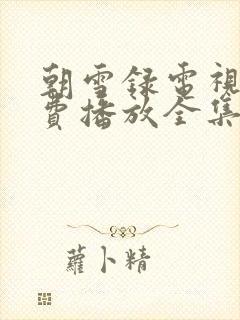 朝雪録電視
費播放全集
蘿卜精